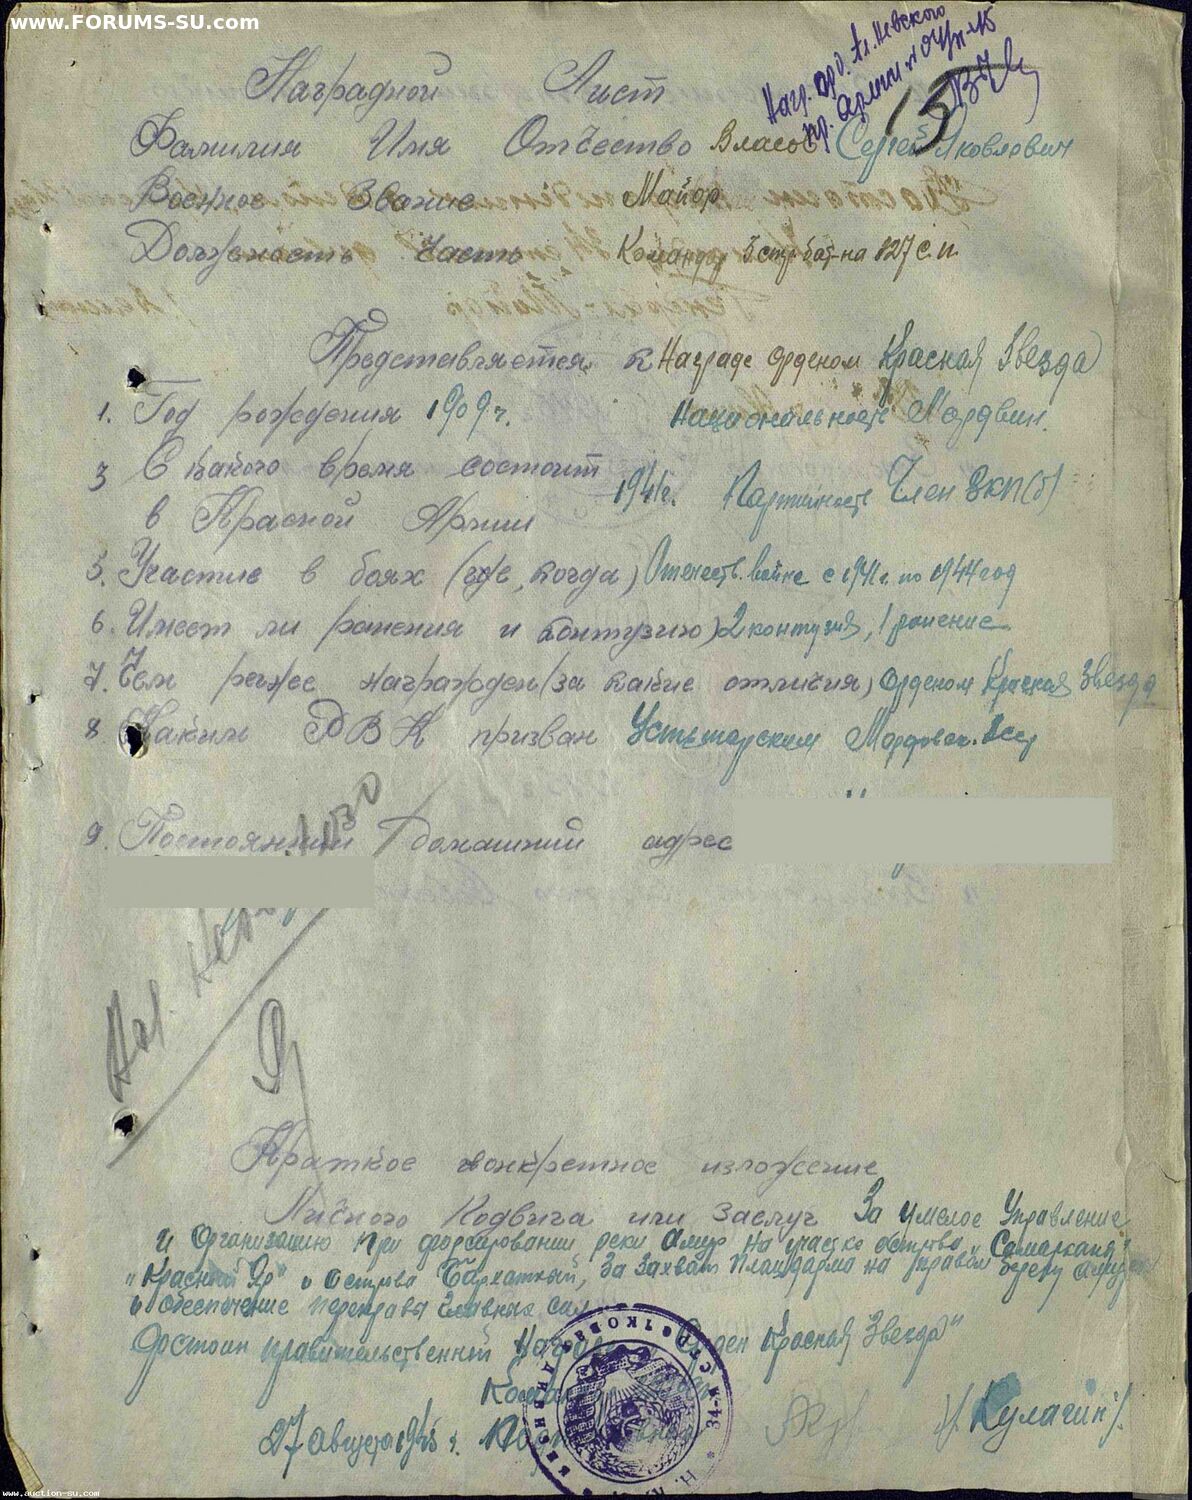 www.FORUMS-SU.com
Нагр. орд. Ал. Невского
пр. армии
15
Наградной Лист
Фамилия Имя Отчество Власов Сергей Яковлевич
Военное Звание Майор
Должность часть Командир 3 стр. бат-на 827 с.п.
Представляется к Награде Орденом Красная Звезда
1. Год рождения 1909 г. Национальность Мордвин.
3 С какого время состоит
в Красной Армии 1941 г. Партийность Член ВКП(б)
5. Участие в боях (где, когда) Отечеств. войне с 1941 г. по 1944 год
6. Имеет ли ранения и контузию) 2 контузия, 1 ранение
7. Чем ранее награжден (за какие отличия) Орденом Красная Звезда
8 Каким РВК призван Мордовск.
9. Постоянный домашний адрес
Краткое конкретное изложение
Личного Подвига или Заслуг За умелое Управление
и Организацию при форсировании реки Амур на участке острова
"Красный Яр" и острова Бархатный, За Захват Плацдарма на правом берегу Амура
и обеспечение переправы главных сил
Достоин правительственной Орден Красная Звезда"
27 августа 1945 г. /Кулагин/.
34-й стрелковой
www.auction-su.com